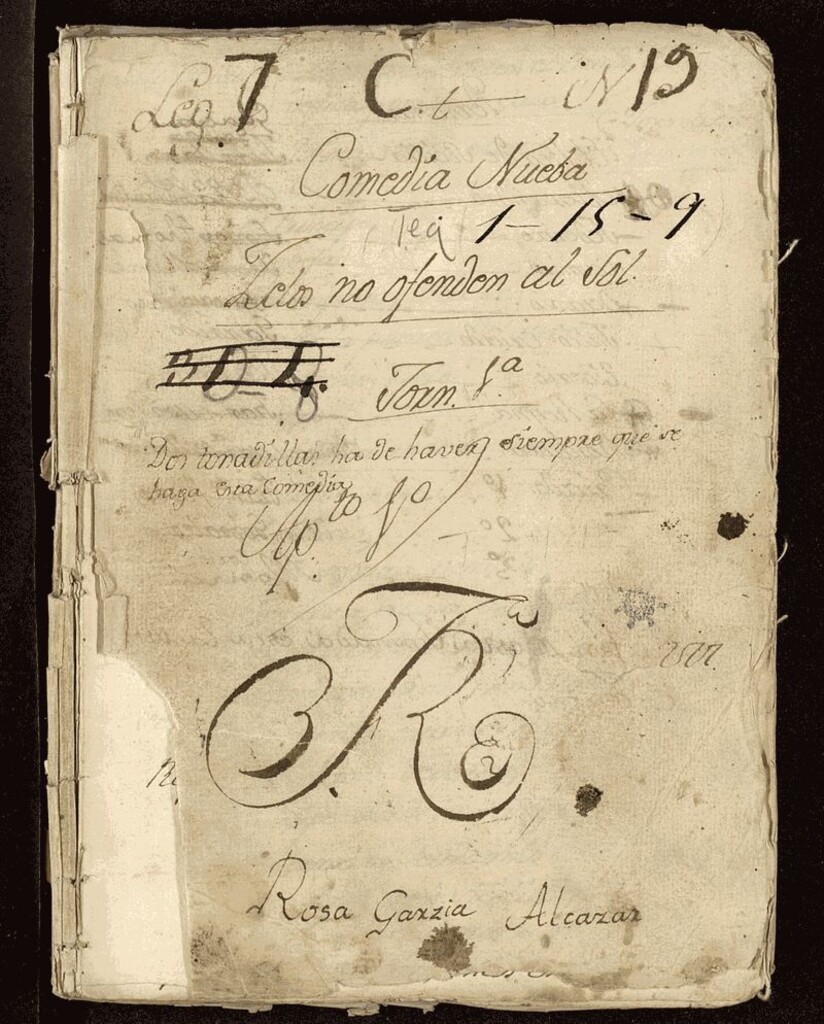 Leg. 7 C. t N 19
Comedia Nueba
Tea 1-15-9
Zelos no ofenden al Sol.
Jorn. 1.a
Dos tonadillas ha de haver siempre que se
haga esta Comedia
Ap.to 1o
Rosa Garzia Alcazar